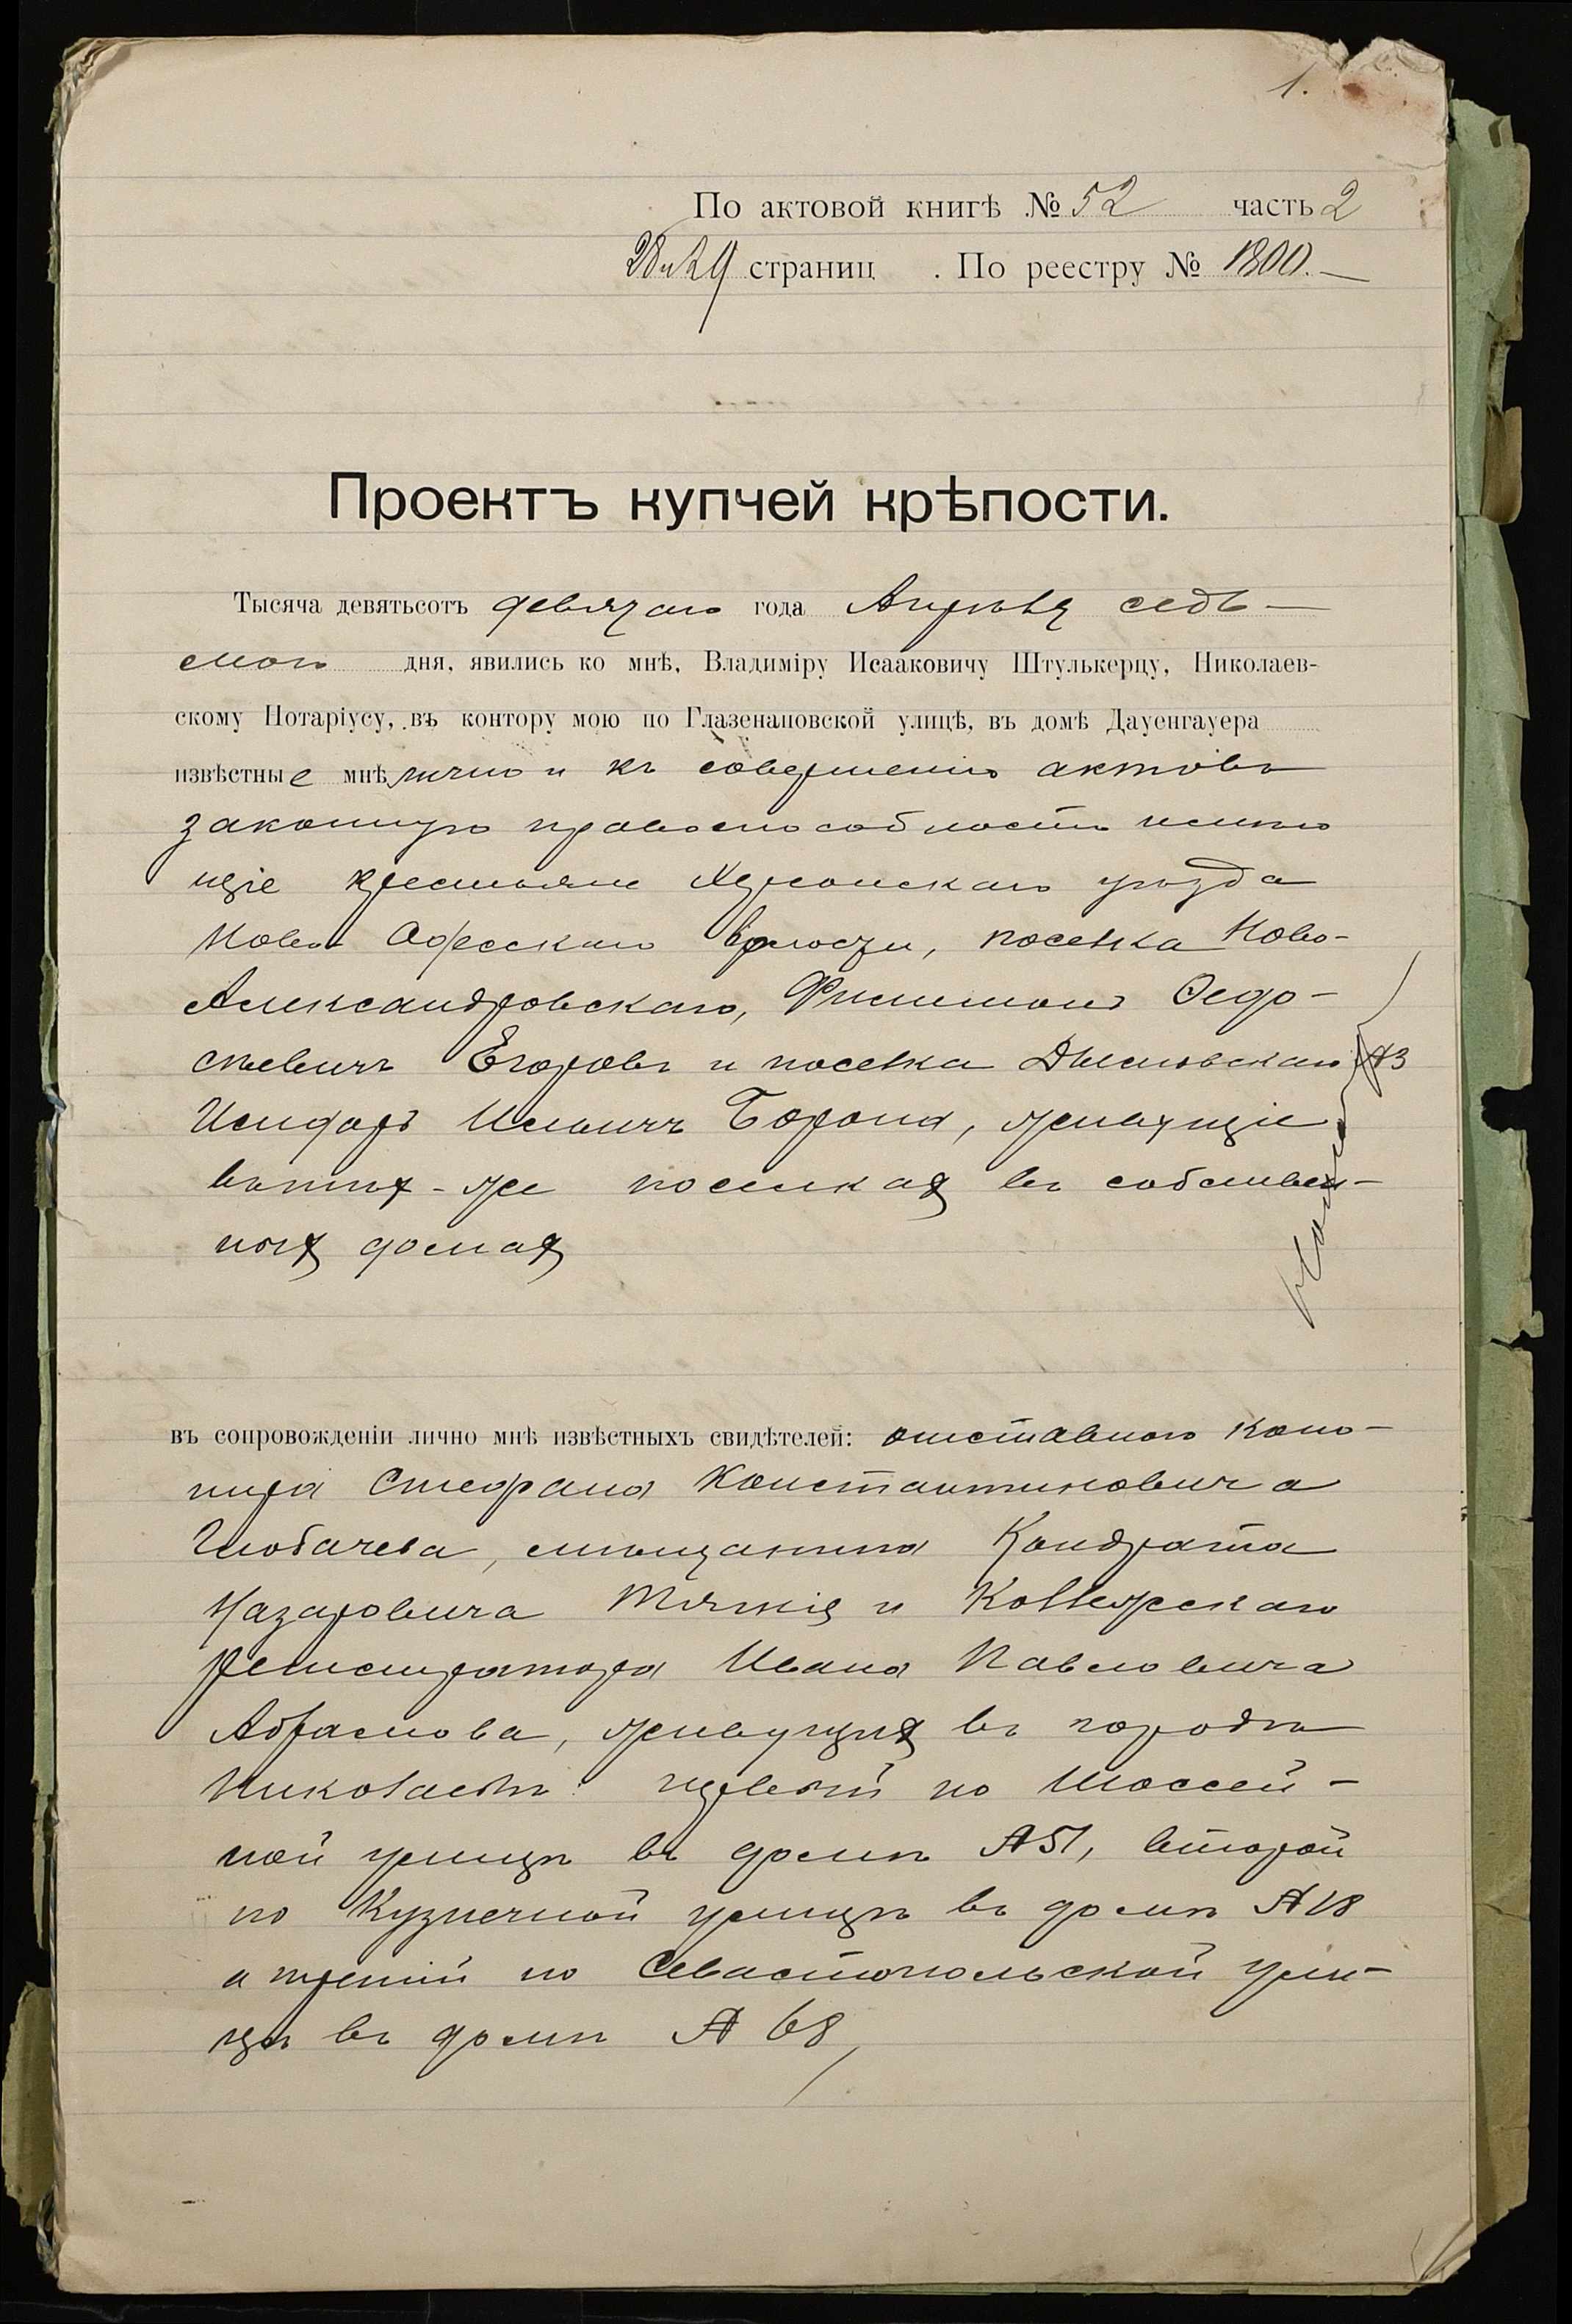 1.
По актовой книгѣ № 52 часть 2
28 и 29 страниц . По реестру № 1800.—
Проектъ купчей крѣпости.
Тысяча девятьсотъ девятаго года Апрѣля седь-
маго дня, явились ко мнѣ, Владиміру Исааковичу Штулькерцу, Николаев-
скому Нотаріусу, въ контору мою по Глазенаповской улицѣ, въ домѣ Дауенгауера
извѣстные мнѣ лично и къ совершенію актовъ
законную правоспособность имѣю
щіе крестьяне Херсонскаго уѣзда
Ново Одесской волости, поселка Ново-
Александровскаго, Филимонъ Федо-
сѣевичъ Егоровъ и поселка №3
Исидоръ Ильичъ Борона, живущіе
въ тѣхъ-же поселкахъ въ собствен-
ныхъ домахъ
въ сопровожденіи лично мнѣ извѣстныхъ свидѣтелей: отставного кано-
нира Стефана Константиновича
Глобачева, мѣщанина Кондрата
Назаровича и Коллежскаго
Регистратора Ивана Павловича
Абрамова, живущихъ въ городѣ
Николаевѣ: первый по Шоссей-
ной улицѣ въ домѣ №51, второй
по Кузнечной улицѣ въ домѣ №18
а третій по Севастопольской ули-
цѣ въ домѣ № 68